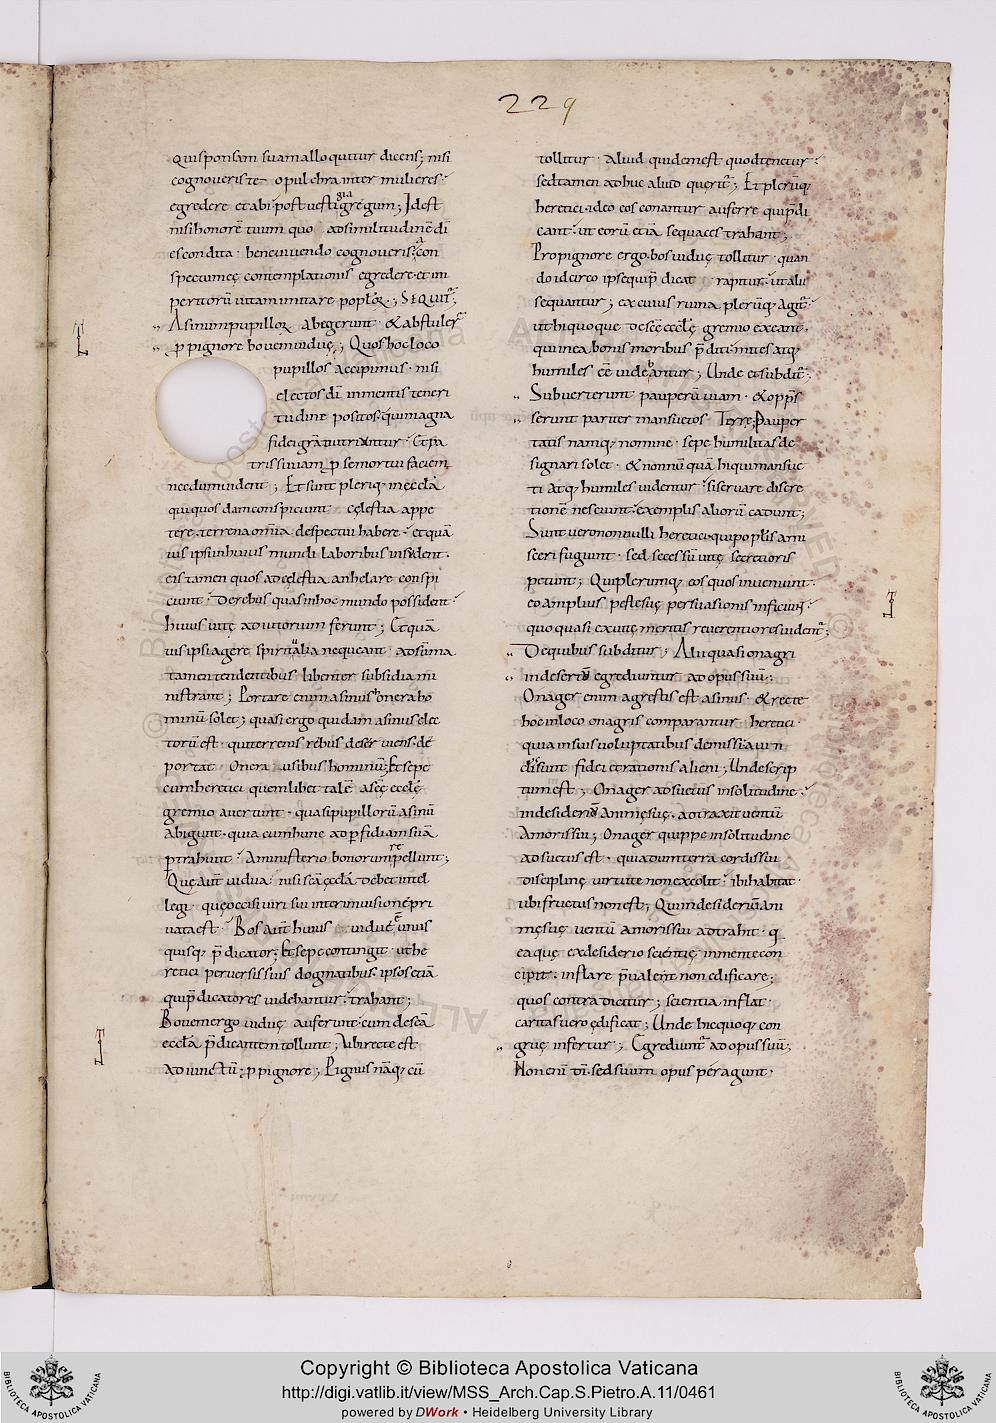 229
qui sponsam suam alloquitur dicens; nisi
cognoveris te o pulchra inter mulieres·
egredere et abi post vestigia gregum; Id est
nisi honorē tuum quo ad similitudinē dī
es condita· bene vivendo cognoveris· a con
spectu meę contemplationis egredere· et im
peritorū vitam imitare popłoꝝ·; SEQUIT̃;
Asinum pupilloꝝ abegerunt· & abstuler̃
ꝑ pignore bovem viduę; Quos hoc loco
pupillos accipimus· nisi
electos dī in mentis teneri
tudine positos· qui magna
fidei gr̄a nutriuntur· Et pa
tris sui iam ꝑ se mortui faciem
necdum vident; Et sunt pleriq; in ęccła
qui quos dam conspiciunt cęlestia appe
tere· terrena om̄ia despectui habere· et quā
vis ipsi in huius mundi laboribus insudent·
eis tamen quos ad cęlestia anhelare conspi
ciunt· De rebus quas in hoc mundo possident·
huius vitę adiutorium ferunt; Et quā
vis ipsi agere spiritualia nequeant· ad sūma
tamen tendentibus libenter subsidia mi
nistrant; Portare enim asinus onera ho
minū solet; quasi ergo quidam asinus elec
torū est· qui terrenis rebus deserviens· de
portat onera usibus hominū; Et sepe
cum heretici quemlibet talē a scę̄ ęccłę
gremio avertunt· quasi pupillorū asinū
abigunt· quia cum hunc ad ꝑfidiam suā
ꝑtrahunt· A ministerio bonorum repellunt;
Quę aut̄ vidua· nisi scā ęccła debet intel
legi· quę occisi viri sui interim visione pri
vata est· Bos aut̄ huius viduę ē unus
quisq; p̄dicator; Et sepe contingit· ut he
retici perversis suis dogmatibus· ipsos etiā
qui p̄dicatores videbantur· trahant;
Bovem ergo viduę auferunt· cum de scā
ęccła p̄dicantem tollunt; Ubi recte est
adiunctū· ꝑ pignore; Pignus nāq; cū
tollitur· aliud quidem est quod tenetur·
sed tamen adhuc aliud querit̃; Et plerūq;
heretici· ideo eos conantur auferre qui p̄di
cant· ut eorū etiā sequaces trahant;
Pro pignore ergo bos viduę tollitur· quan
do idcirco ipse qui p̄dicat rapitur· ut alii
sequantur; ex cuius ruina plerūq; agit̃·
ut hi quoque de scę̄ ęccłę gremio exeant·
qui in ea bonis moribus p̄diti· mites atq;
humiles eē videbantur; Unde et subdit̃·
Subverterunt pauperū viam· & opp̄s
serunt pariter mansuetos Terrę; Pauper
tatis namq; nomine· sepe humilitas de
signari solet· & nonnūquā hi qui mansue
ti atq; humiles videntur· si servare discre
tionē nesciunt· exemplis aliorū cadunt;
Sunt vero nonnulli heretici· qui popłis ami
sceri fugiunt· sed secessū vitę secretioris
petunt; Qui plerumq; eos quos inveniunt·
eo amplius pestę suę persuasionis inficiunt·
quo quasi ex vitę meritis reverentiores vident̃;
De quibus subditur; Alii quasi onagri
in deserto egrediuntur ad opus suū·;
Onager enim agrestis est asinus· & recte
hoc in loco onagris comparantur heretici·
quia in suis voluptatibus demissi· a vin
clis sunt fidei et rationis alieni; Unde scrip
tum est; Onager adsuetus in solitudine·
in desiderio Animę suę· adtraxit ventū
Amoris sui; Onager quippe in solitudine
adsuetus est· quia dum terra cordis sui
disciplinę virtute non excolit· ibi habitat·
ubi fructus non est; Qui in desideriū ani
mę suę ventū amoris sui adtrahit· q
ea quę ex desiderio scientię in mente con
cipit· inflare p̄valent non edificare;
quos contra dicitur; scientia inflat·
caritas vero ędificat; Unde hic quoq; con
gruę infertur·; Egrediunt̃ ad opus suū;
Non enī dī· sed suum opus peragunt·
Copyright © Biblioteca Apostolica Vaticana
http://digi.vatlib.it/view/MSS_Arch.Cap.S.Pietro.A.11/0461
powered by DWork • Heidelberg University Library
BIBLIOTECA APOSTOLICA VATICANA
BIBLIOTECA APOSTOLICA VATICANA